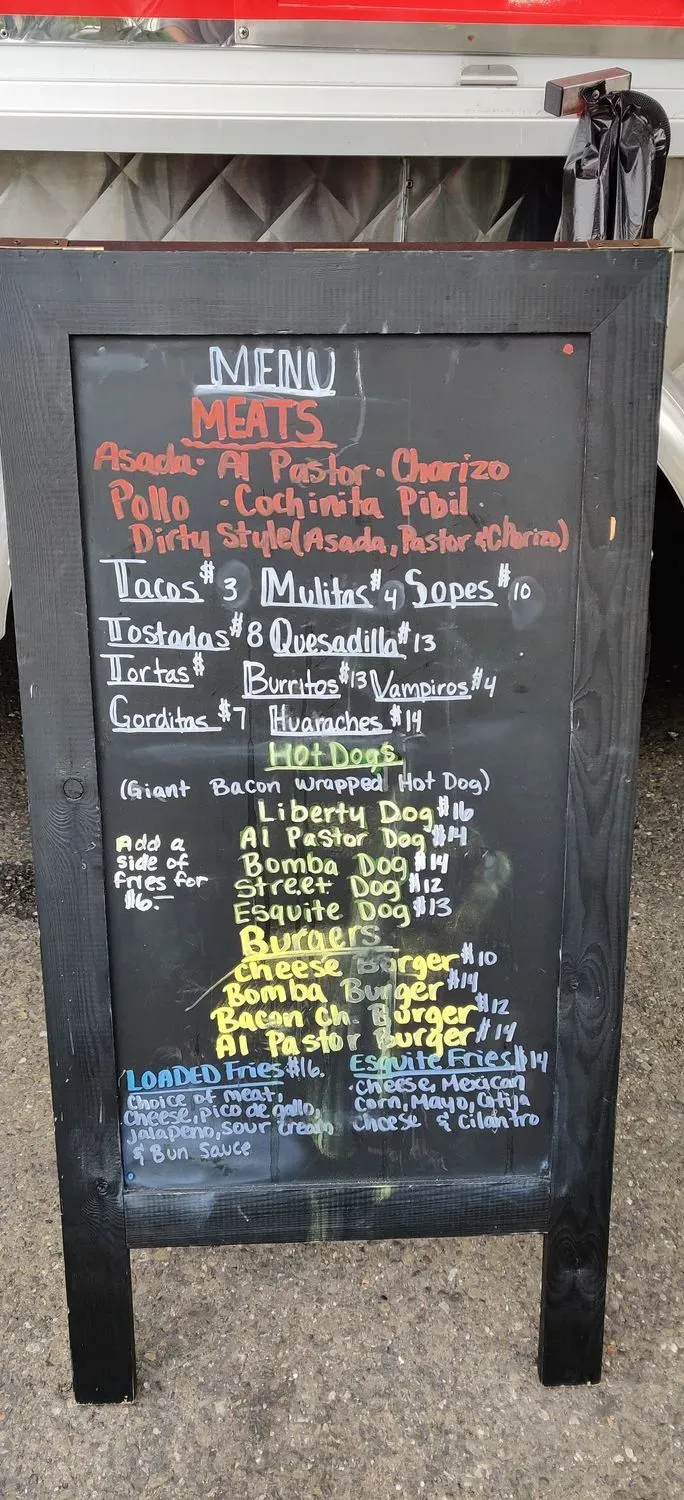 MENU
MEATS
Asada · Al Pastor · Chorizo
Pollo · Cochinita Pibil
Dirty Style (Asada, Pastor & Chorizo)
Tacos $3 Mulitas $4 Sopes $10
Tostadas $8 Quesadilla $13
Tortas $ Burritos $13 Vampiros $4
Gorditas $7 Huaraches $14
Hot Dogs
(Giant Bacon Wrapped Hot Dog)
Liberty Dog $16
Al Pastor Dog $14
Bomba Dog $14
Street Dog $12
Esquite Dog $13
Add a
side of
fries for
$6.-
Burgers
cheese Burger $10
Bomba Burger $14
Bacon Ch. Burger $12
Al Pastor Burger $14
LOADED Fries $16.
Choice of meat,
Cheese, pico de gallo,
jalapeno, sour cream
& Bun Sauce
Esquite Fries $14
·Cheese, Mexican
Corn, Mayo, Cotija
Cheese & Cilantro